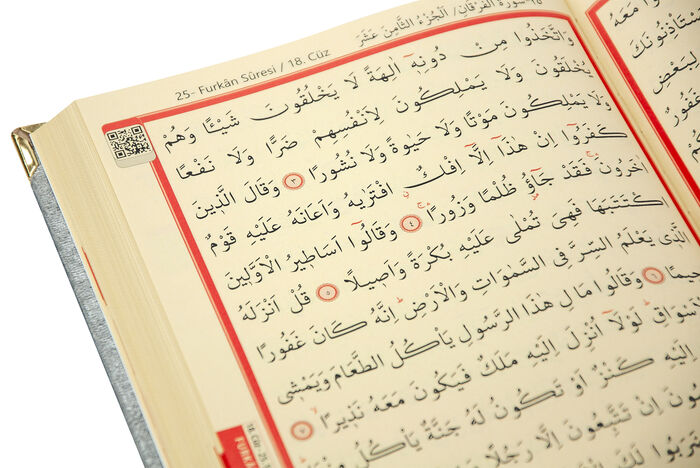 25- Furkân Sûresi / 18. Cüz
سُورَةُ الْفُرْقَانِ / اَلْجُزْءُ الثَّامِنَ عَشَرَ
وَاتَّخَذُوا مِنْ دُونِهٖٓ اٰلِهَةً لَا يَخْلُقُونَ شَيْـًٔا وَهُمْ
يُخْلَقُونَ وَلَا يَمْلِكُونَ لِاَنْفُسِهِمْ ضَرًّا وَلَا نَفْعًا
وَلَا يَمْلِكُونَ مَوْتًا وَلَا حَيٰوةً وَلَا نُشُورًا ﴿٣﴾ وَقَالَ الَّذٖينَ
كَفَرُٓوا اِنْ هٰذَٓا اِلَّٓا اِفْكٌ افْتَرٰيهُ وَاَعَانَهُ عَلَيْهِ قَوْمٌ
اٰخَرُونَ فَقَدْ جَٓاؤُ۫ ظُلْمًا وَزُورًا ﴿٤﴾ وَقَالُٓوا اَسَاطٖيرُ الْاَوَّلٖينَ
اكْتَتَبَهَا فَهِيَ تُمْلٰى عَلَيْهِ بُكْرَةً وَاَصٖيلًا ﴿٥﴾ قُلْ اَنْزَلَهُ
الَّذٖي يَعْلَمُ السِّرَّ فِي السَّمٰوَاتِ وَالْاَرْضِ اِنَّهُ كَانَ غَفُورًا
ﻴمًا ﴿٦﴾ وَقَالُوا مَالِ هٰذَا الرَّسُولِ يَأْكُلُ الطَّعَامَ وَيَمْشٖي
سْوَاقِ لَوْلَٓا اُنْزِلَ اِلَيْهِ مَلَكٌ فَيَكُونَ مَعَهُ نَذٖيرًا ﴿٧﴾
اِلَيْهِ كَنْزٌ اَوْ تَكُونُ لَهُ جَنَّةٌ يَأْكُلُ
اِنْ تَتَّبِعُونَ اِلَّا رَجُلًا
مَعَهُ